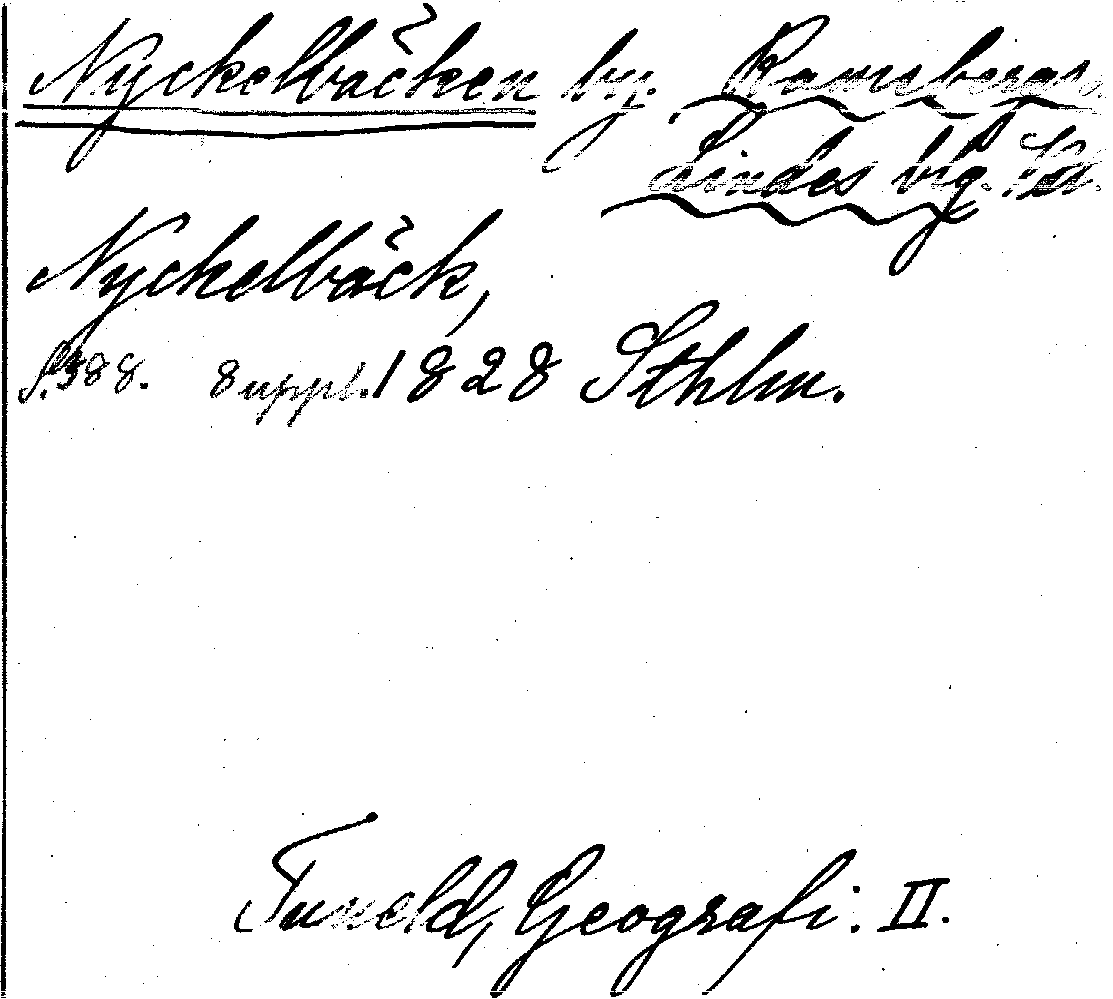 Nyckelbäcken by. Ramsbergs
Lindes brg.
Nyckelbäck,
s. 388. 8 uppl. 1828 Sthlm.
Tuneld, Geografi: II.